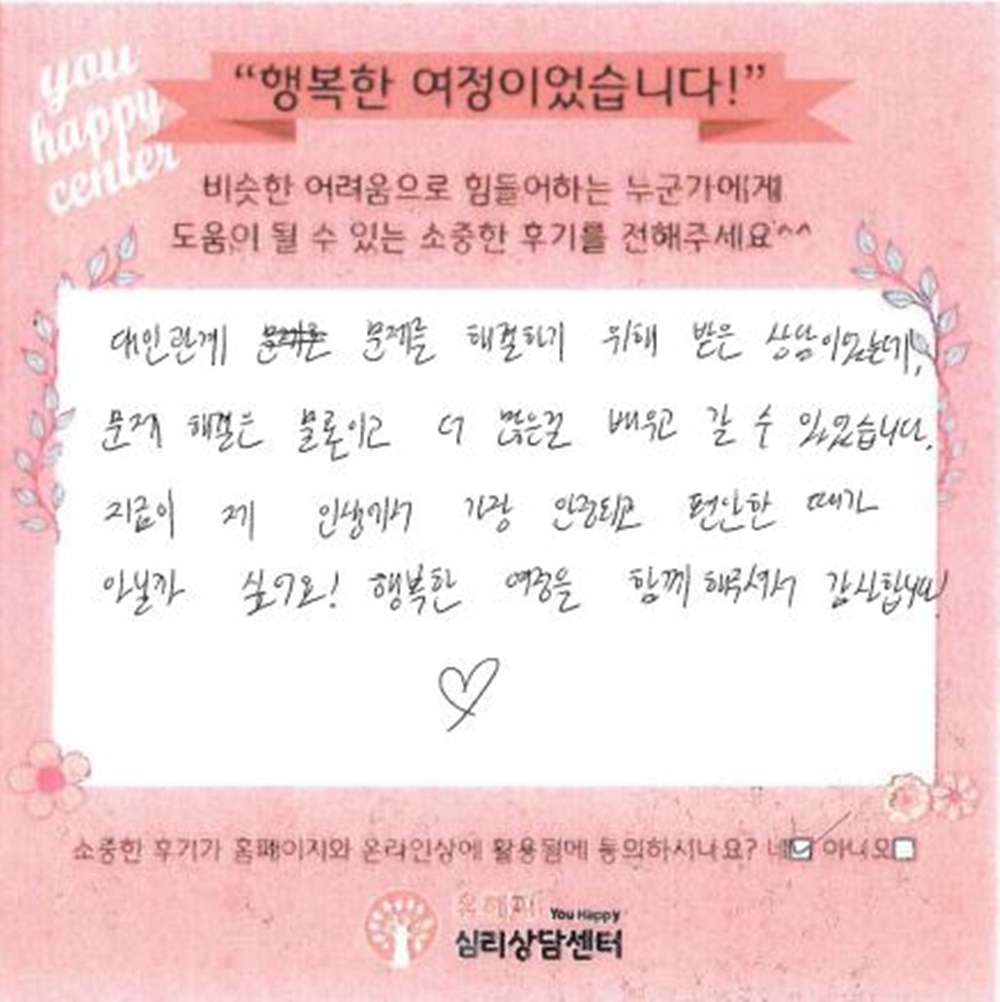 you
happy
center
“행복한 여정이었습니다!”
비슷한 어려움으로 힘들어하는 누군가에게
도움이 될 수 있는 소중한 후기를 전해주세요^^
대인관계 문제를 해결하기 위해 받은 상담이었는데,
문제 해결은 물론이고 더 많은걸 배우고 갈 수 있었습니다.
지금이 제 인생에서 가장 안정되고 편안한 때가
아닐까 싶어요! 행복한 여정을 함께 해주셔서 감사합니다!
소중한 후기가 홈페이지와 온라인상에 활용됨에 동의하시나요? 네 아니오
유해피 You Happy
심리상담센터